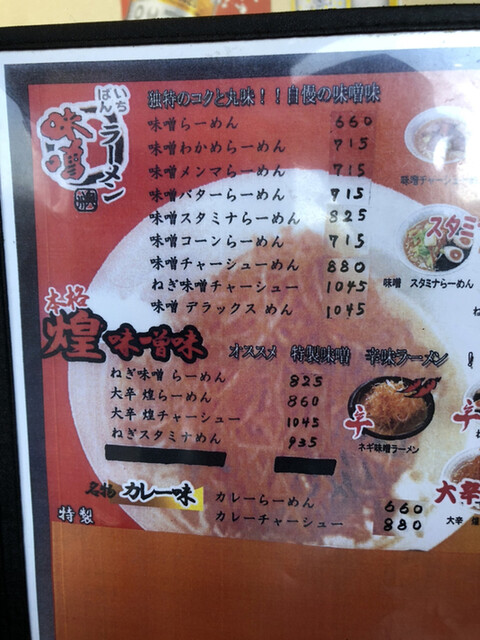 いちばん
味噌
ラーメン
独特のコクと丸味！！自慢の味噌味
味噌らーめん 660
味噌わかめらーめん 715
味噌メンマらーめん 715
味噌バターらーめん 715
味噌スタミナらーめん 825
味噌コーンらーめん 715
味噌チャーシューめん 880
ねぎ味噌チャーシュー 1045
味噌 デラックス めん 1045
味噌チャーシュー
スタミ
味噌 スタミナらーめん
本格
煌 味噌味
オススメ 特製味噌 辛味ラーメン ！
ねぎ味噌 らーめん 825
大辛 煌らーめん 860
大辛 煌チャーシュー 1045
ねぎスタミナめん 935
辛
ネギ味噌ラーメン
名物 カレー味
特製
カレーらーめん 660
カレーチャーシュー 880
大辛
大辛 煌